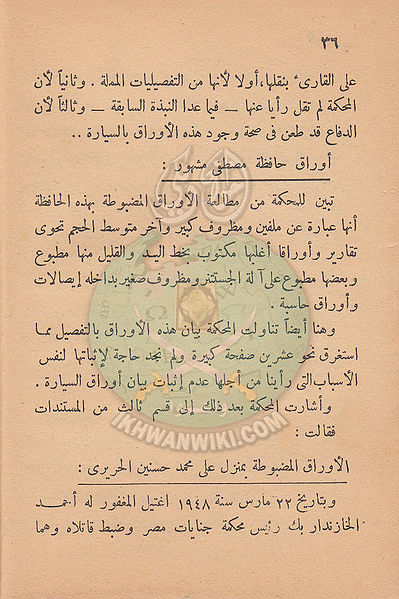 ٣٦
على القارئ بنقلها، أولا لأنها من التفصيليات المملة . وثانياً لأن
المحكمة لم تقل رأيا عنها — فيما عدا النبذة السابقة — وثالثاً لأن
الدفاع قد طعن فى صحة وجود هذه الأوراق بالسيارة ..
أوراق حافظة مصطفى مشهور :
تبين للمحكمة من مطالعة الأوراق المضبوطة بهذه الحافظة
أنها عبارة عن ملفين ومظروف كبير وآخر متوسط الحجم تحوى
تقارير وأوراقا أغلبها مكتوب بخط اليد والقليل منها مطبوع
وبعضها مطبوع على آلة الجستتنر ومظروف صغير بداخله إيصالات
وأوراق حاسبة .
وهنا أيضاً تناولت المحكمة بيان هذه الأوراق بالتفصيل مما
استغرق نحو عشرين صفحة كبيرة ولم نجد حاجة لإثباتها لنفس
الأسباب التى رأينا من أجلها عدم إثبات بيان أوراق السيارة .
وأشارت المحكمة بعد ذلك إلى قسم ثالث من المستندات
فقالت :
الأوراق المضبوطة بمنزل على محمد حسنين الحريرى :
وبتاريخ ٢٢ مارس سنة ١٩٤٨ اغتيل المغفور له أحمد
الخازندار بك رئيس محكمة جنايات مصر وضبط قاتلاه وهما
IKHWANWIKI.COM